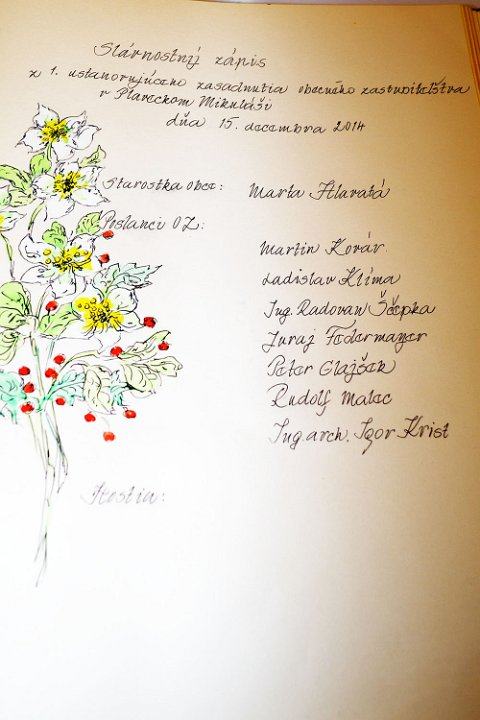 Slávnostný zápis
z 1. ustanovujúceho zasadnutia obecného zastupiteľstva
v Plaveckom Mikuláši
dňa 15. decembra 2014
Starostka obce: Marta Hlavatá
Poslanci OZ:
Martin Kovár
Ladislav Klíma
Ing. Radovan Ščepka
Juraj Federmayer
Peter Glajšek
Rudolf Malec
Ing. arch. Igor Krist
Hostia: